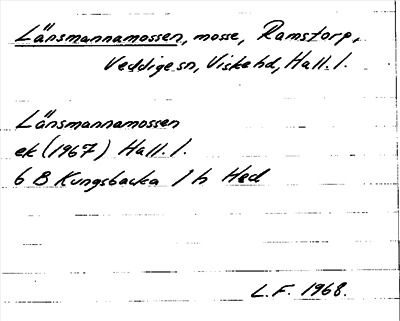 Länsmannamossen, mosse, Ramstorp,
Veddige sn, Viske hd, Hall. l.
Länsmannamossen
ek (1967) Hall. l.
6 B Kungsbacka 1 h Hed
L.F. 1968.